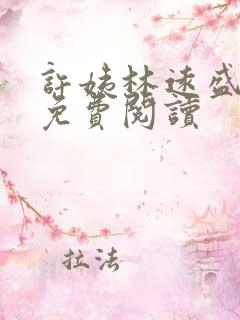 許姨林速盛
免費閱讀
拉法